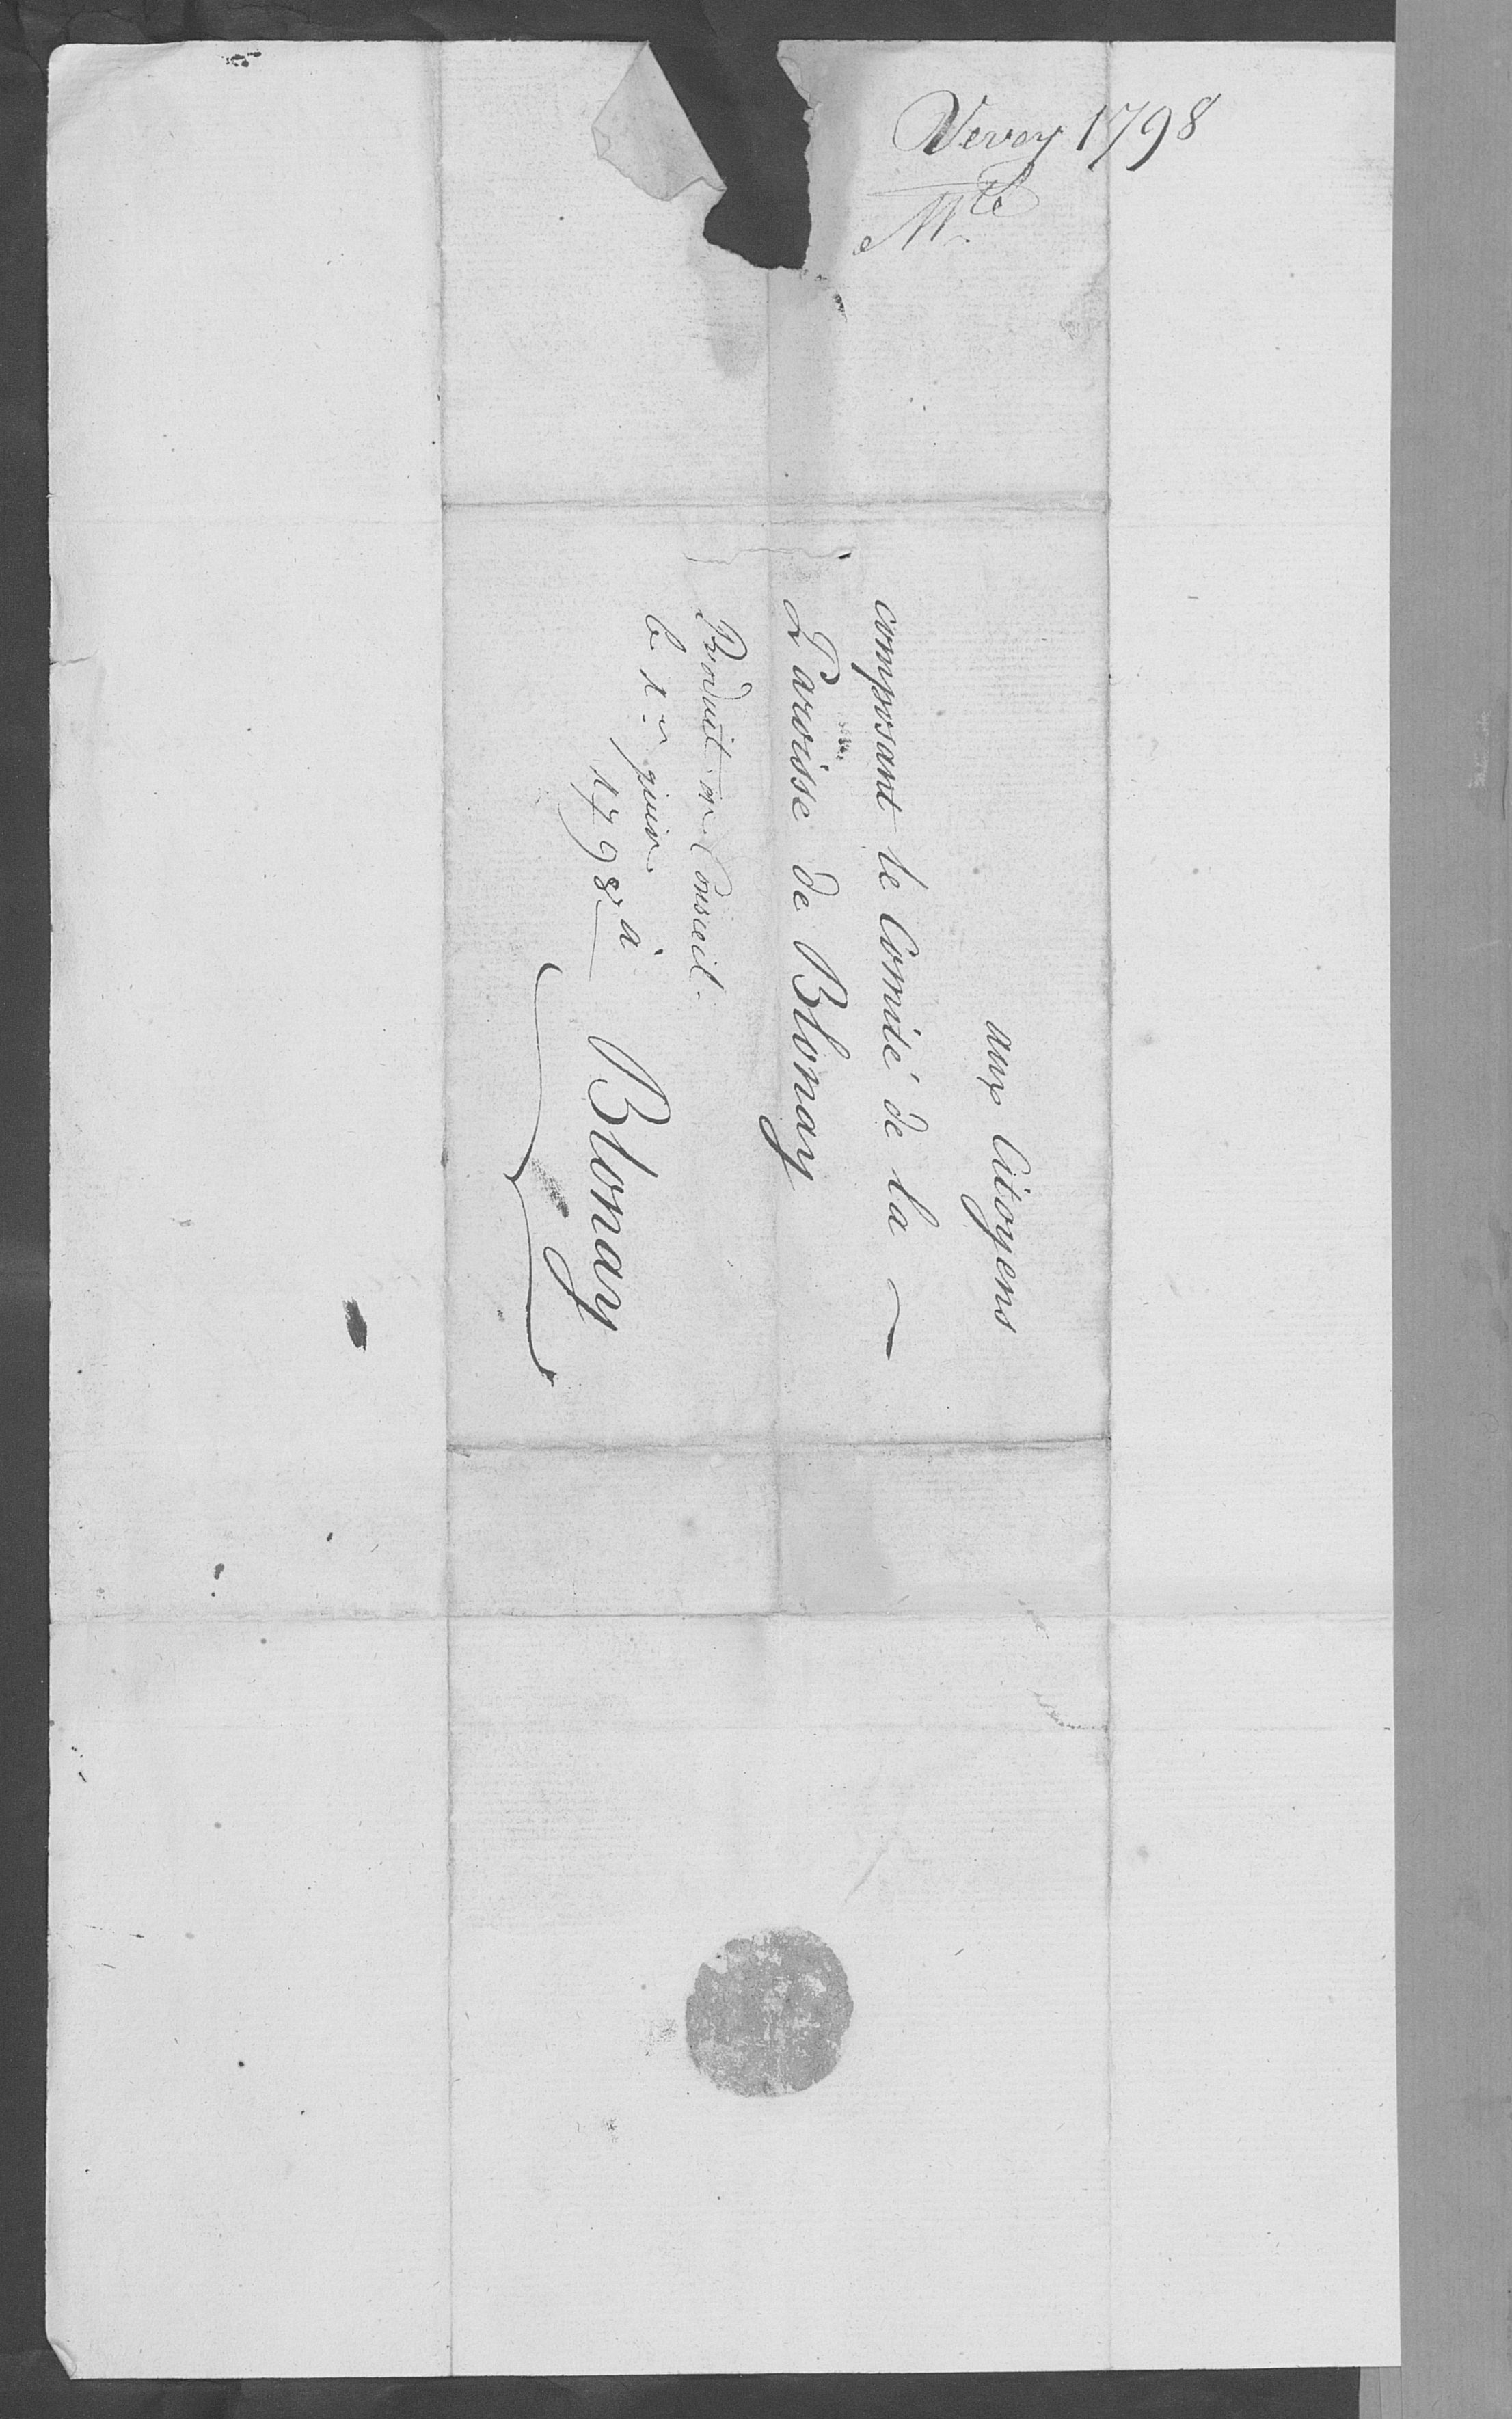 Vevey 1798
aux Citoyens
composant le Comité de la
Paroisse de Blonay
à Blonay
Produit en Conseil
le 1er juin
1798